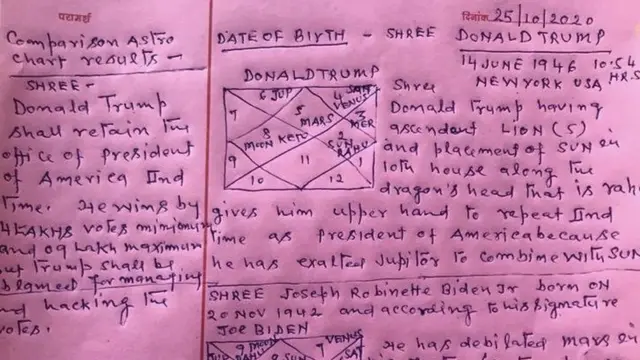 परामर्श
दिनांक 25/10/2020
Comparison Astro
chart results -
SHREE -
Donald Trump
shall retain the
office of president
of America IInd
time. He wins by
4 LAKHS votes minimum
and 09 Lakh maximum
but Trump shall be
blamed for managing
and hacking the
votes.
DATE OF BIRTH - SHREE DONALD TRUMP
14 JUNE 1946 10.54 HRS
NEW YORK USA
DONALD TRUMP
6 JUP
4 SAN
VENUS
7
5
MARS
3
MER
8
MOON
KETU
2
SUN
RAHU
9
11
1
10
12
Shree
Donald Trump having
ascendent LION (5)
and placement of SUN in
10th house along the
dragon's head that is rahu
gives him upper hand to repeat IInd
time as president of America because
he has exalted Jupitor to combine WITH SUN
SHREE Joseph Robinette Biden Jr born on
20 NOV 1942 and according to his signature
JOE BIDEN
9 MOON
7
VENUS
SUN
SAT
He has debilated mars in